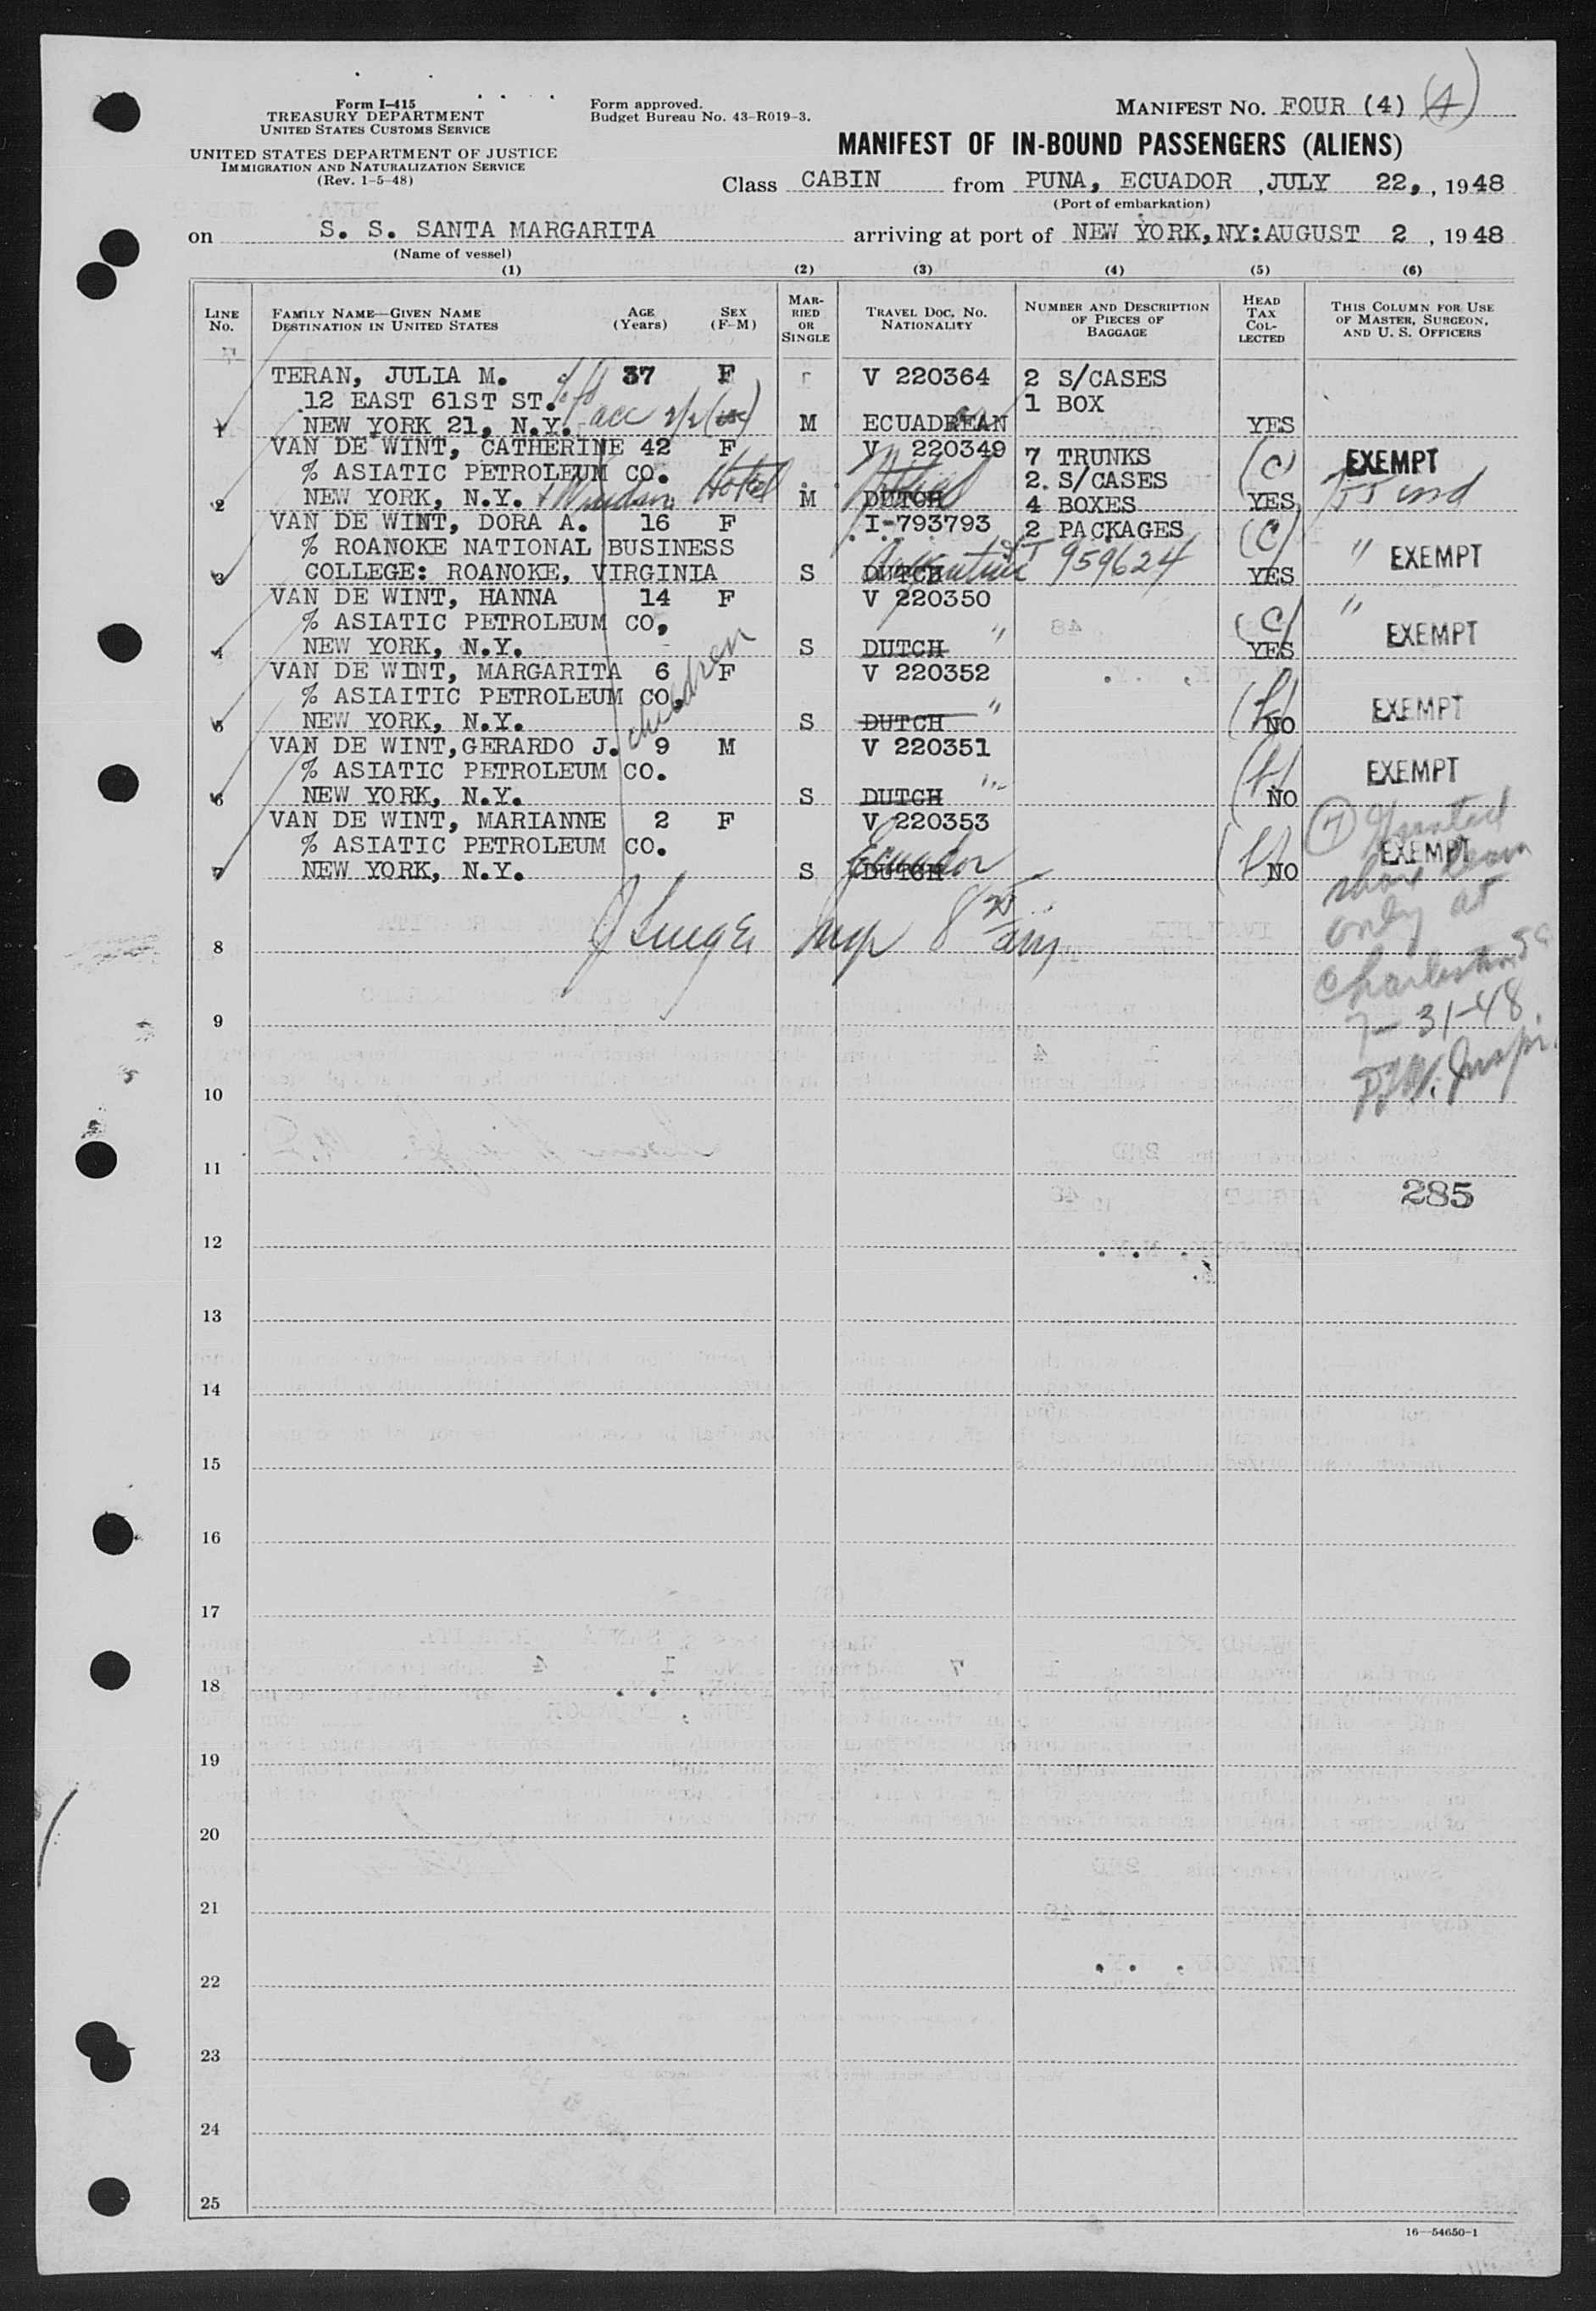 Form I-415
TREASURY DEPARTMENT
UNITED STATES CUSTOMS SERVICE
UNITED STATES DEPARTMENT OF JUSTICE
IMMIGRATION AND NATURALIZATION SERVICE
(Rev. 1-5-48)
Form approved.
Budget Bureau No. 43-R019-3.
MANIFEST NO. FOUR (4) (4)
MANIFEST OF IN-BOUND PASSENGERS (ALIENS)
Class CABIN from PUNA, ECUADOR , JULY 22, , 1948
(Port of embarkation)
on S. S. SANTA MARGARITA arriving at port of NEW YORK, NY: AUGUST 2 , 1948
(Name of vessel)
(1) (2) (3) (4) (5) (6)
LINE NO.
FAMILY NAME—GIVEN NAME
DESTINATION IN UNITED STATES
AGE (Years)
SEX (F-M)
MARRIED OR SINGLE
TRAVEL DOC. NO.
NATIONALITY
NUMBER AND DESCRIPTION OF PIECES OF BAGGAGE
HEAD TAX COLLECTED
THIS COLUMN FOR USE OF MASTER, SURGEON, AND U. S. OFFICERS
TERAN, JULIA M. 37 F V 220364 2 S/CASES
12 EAST 61ST ST. 1 BOX
1 NEW YORK 21, N.Y. M ECUADREAN YES
VAN DE WINT, CATHERINE 42 F V 220349 7 TRUNKS (C) EXEMPT
% ASIATIC PETROLEUM CO. 2 S/CASES
2 NEW YORK, N.Y. Hotel M DUTCH 4 BOXES YES
VAN DE WINT, DORA A. 16 F I-793793 2 PACKAGES (C)
% ROANOKE NATIONAL BUSINESS 959624 " EXEMPT
3 COLLEGE: ROANOKE, VIRGINIA S DUTCH YES
VAN DE WINT, HANNA 14 F V 220350 "
% ASIATIC PETROLEUM CO, (C) EXEMPT
4 NEW YORK, N.Y. S DUTCH " YES
children
VAN DE WINT, MARGARITA 6 F V 220352
% ASIAITIC PETROLEUM CO, EXEMPT
5 NEW YORK, N.Y. S DUTCH " NO
VAN DE WINT,GERARDO J. 9 M V 220351
% ASIATIC PETROLEUM CO. EXEMPT
6 NEW YORK, N.Y. S DUTCH " NO
VAN DE WINT, MARIANNE 2 F V 220353
% ASIATIC PETROLEUM CO. Ecuador EXEMPT
7 NEW YORK, N.Y. S DUTCH NO
Granted
shore leave
only at
Charleston SC
7-31-48
Inspr.
8
9
10
11
285
12
13
14
15
16
17
18
19
20
21
22
23
24
25
16—54650-1